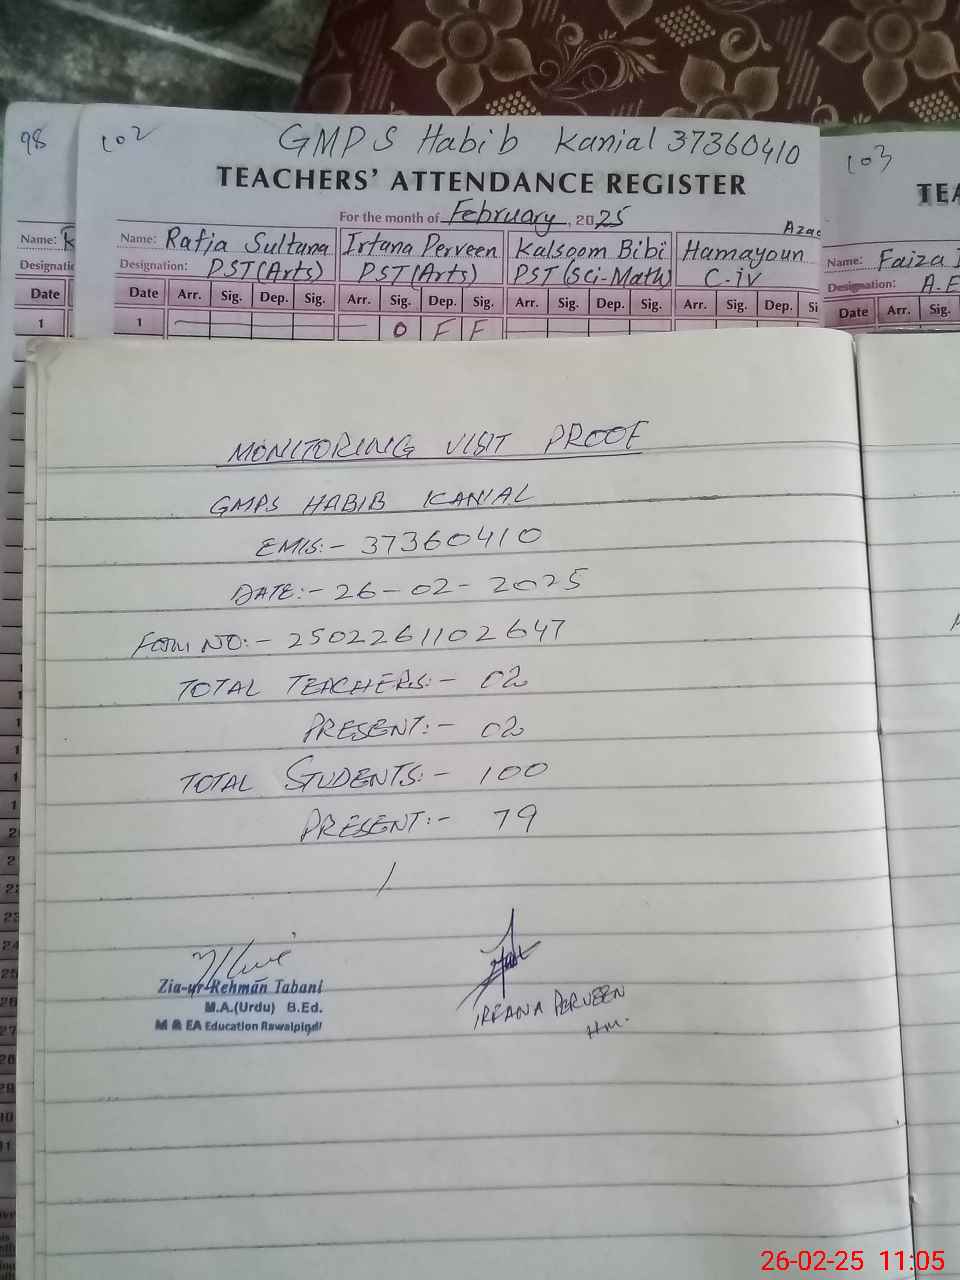 98
102
GMPS Habib Kanial 37360410
TEACHERS' ATTENDANCE REGISTER
For the month of February, 2025
Name: Rafia Sultana Irfana Perveen Kalsoom Bibi Hamayoun Azad
Designation: PST(Arts) PST(Arts) PST(Sci-Math) C-iv
Date Arr. Sig. Dep. Sig. Arr. Sig. Dep. Sig. Arr. Sig. Dep. Sig. Arr. Sig. Dep. Si
1 O F F
Name:
Designatic
Date
1
103
TEA
Name: Faiza
Designation: A.E
Date Arr. Sig.
MONITORING VISIT PROOF
GMPS HABIB KANIAL
EMIS:- 37360410
DATE:- 26-02-2025
Form NO:- 2502261102647
TOTAL TEACHERS:- 02
PRESENT:- 02
TOTAL STUDENTS:- 100
PRESENT:- 79
Zia-ur-Rehman Tabani
M.A.(Urdu) B.Ed.
M & EA Education Rawalpindi
IRFANA PERVEEN
HM.
26-02-25 11:05